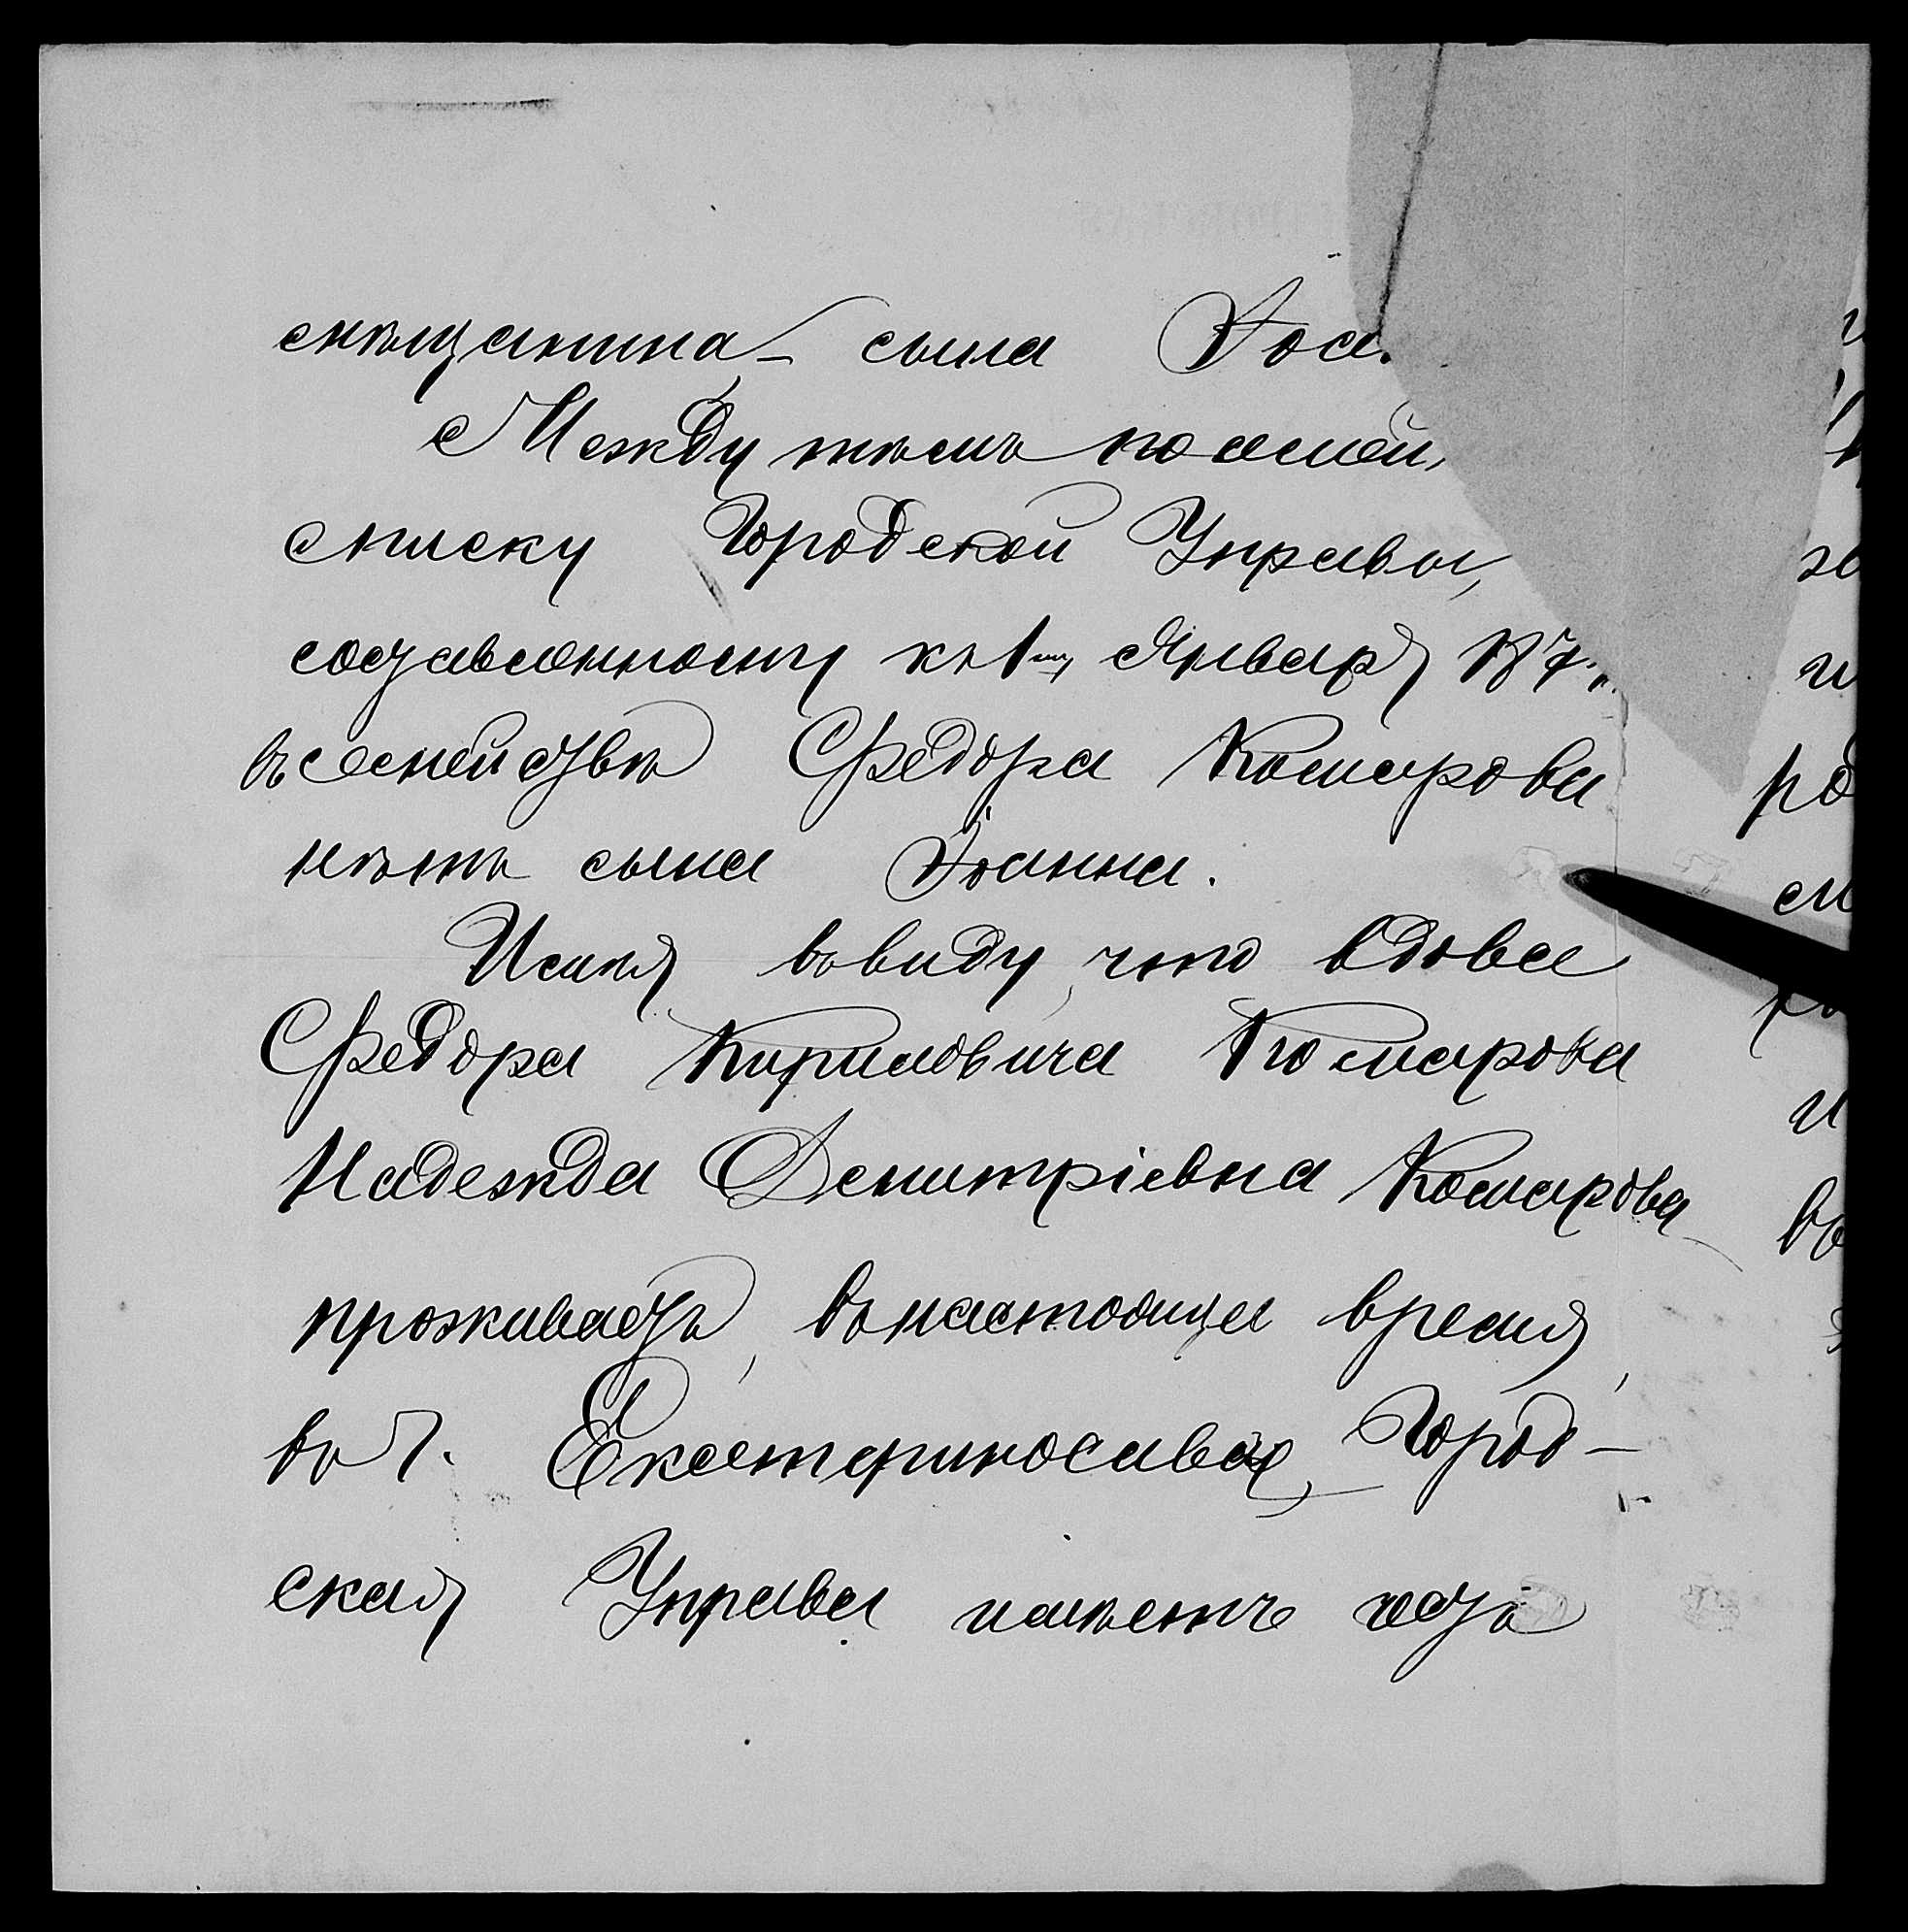 мѣщанина, – сына Іоа
Между тѣмъ по семей
списку Городской Управы,
составленному къ 1му Января 187
въ семействѣ Федора Комарова
нѣтъ сына Іоанна.
Имѣя въ виду, что вдова
Федора Кириловича Комарова
Надежда Демитріевна Комарова
проживаетъ, въ настоящее время,
въ г. Екатеринославѣ, Город-
ская Управа имѣетъ честь